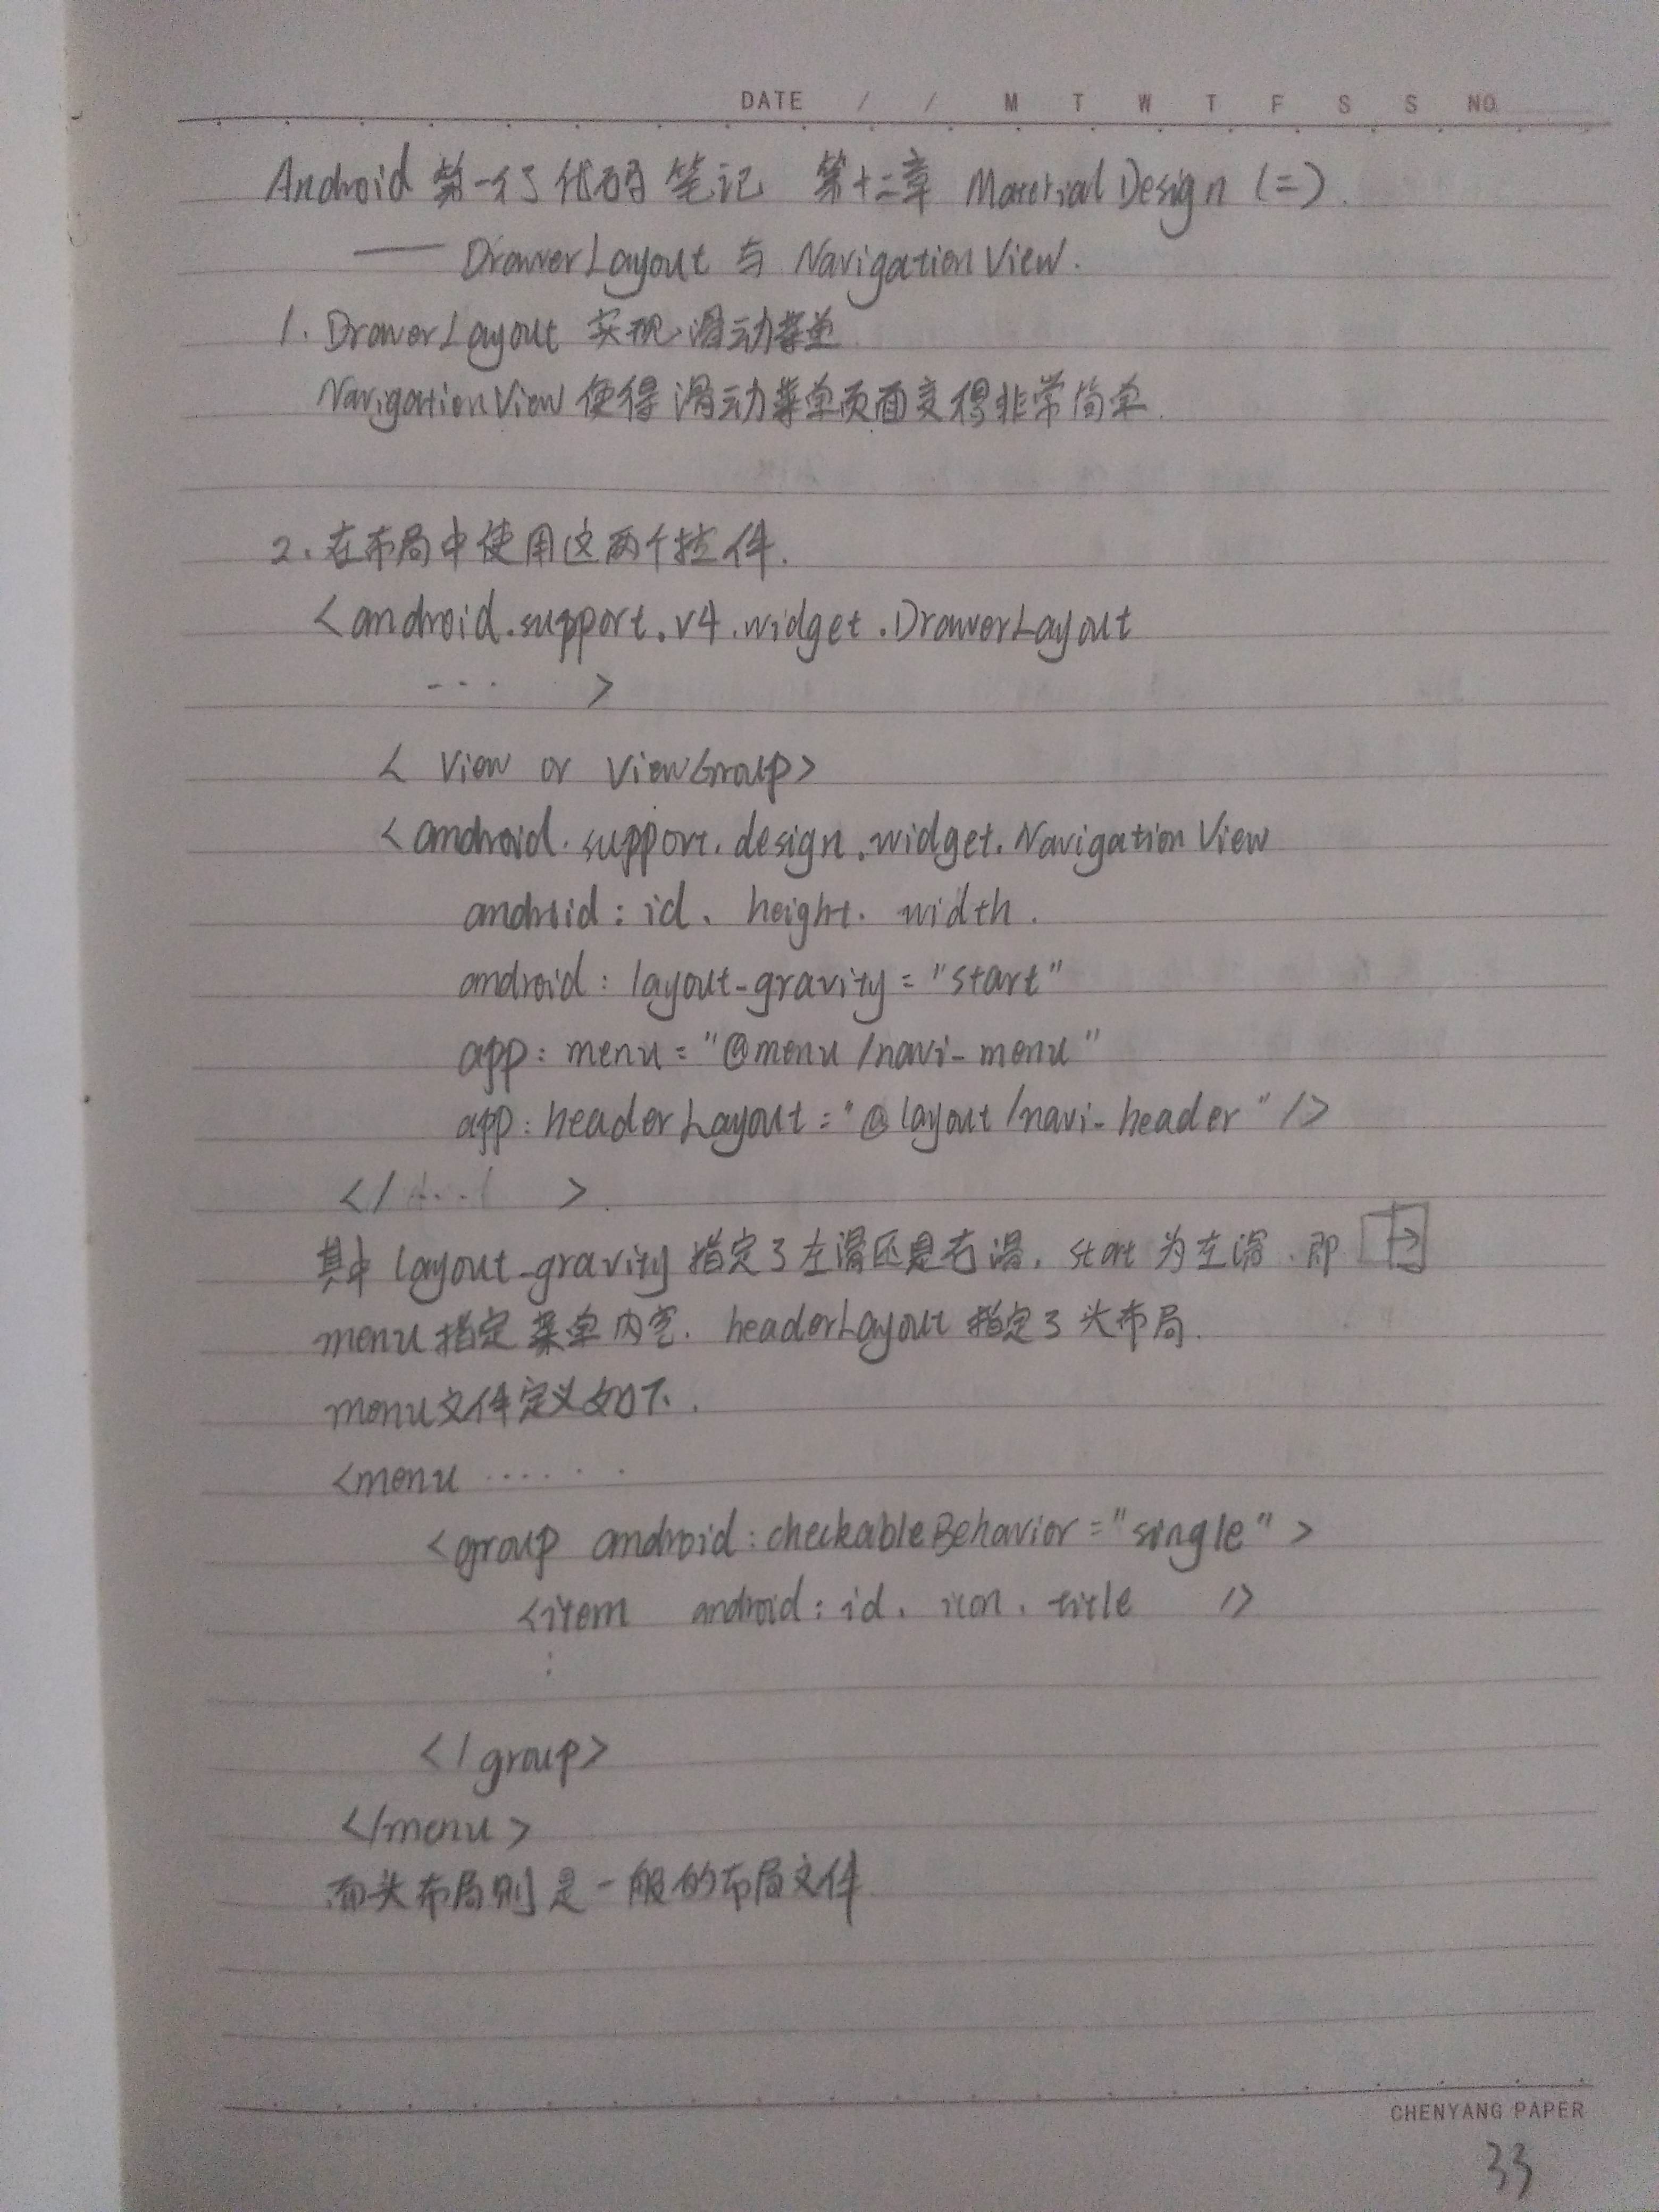 DATE / / M T W T F S S NO.
Android 第一行代码 笔记 第十二章 Material Design (二).
—— DrawerLayout 与 NavigationView.
1. DrawerLayout 实现滑动菜单
NavigationView 使得滑动菜单页面变得非常简单.
2. 在布局中使用这两个控件.
<android.support.v4.widget.DrawerLayout
... >
< View or ViewGroup>
<android.support.design.widget.NavigationView
android: id、height、width.
android: layout_gravity = "start"
app: menu = "@menu/navi_menu"
app: headerLayout = "@layout/navi_header" />
</ >.
其中 layout_gravity 指定了左滑还是右滑, start 为左滑. 即
menu 指定菜单内容. headerLayout 指定了头布局.
menu文件定义如下.
<menu ......
<group android:checkableBehavior="single" >
<item android: id、icon、title />
:
</group>
</menu>
而头布局则是一般的布局文件
CHENYANG PAPER
33